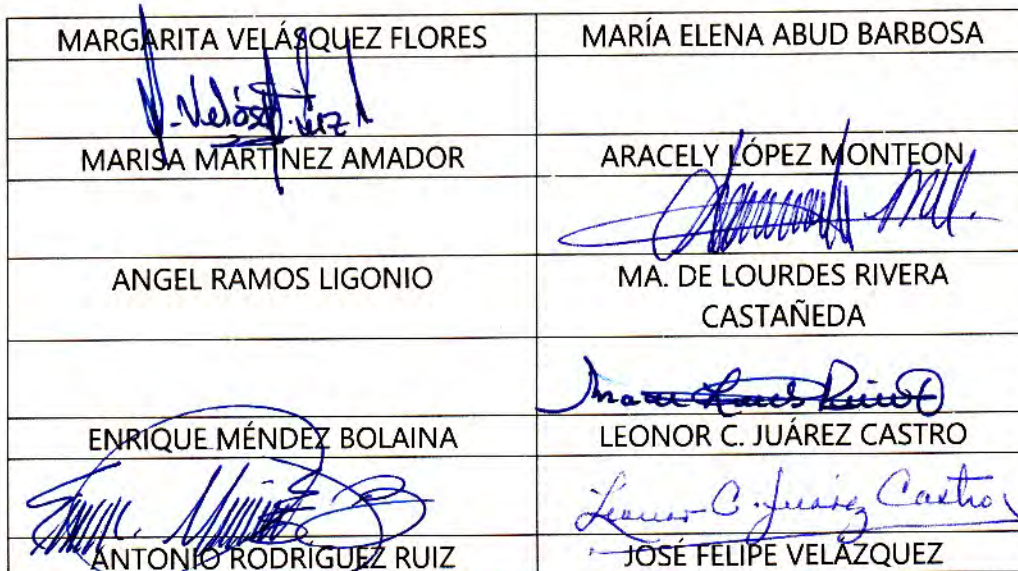 MARGARITA VELÁSQUEZ FLORES
MARÍA ELENA ABUD BARBOSA
MARISA MARTÍNEZ AMADOR
ARACELY LÓPEZ MONTEON
ANGEL RAMOS LIGONIO
MA. DE LOURDES RIVERA
CASTAÑEDA
ENRIQUE MÉNDEZ BOLAINA
LEONOR C. JUÁREZ CASTRO
Leonor C. Juárez Castro
ANTONIO RODRÍGUEZ RUIZ
JOSÉ FELIPE VELÁZQUEZ